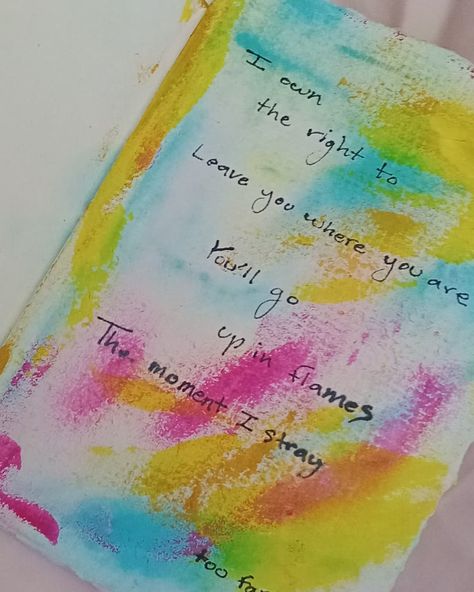 I own
the right to
Leave you where you are
You'll go
up in flames
The moment I stray
too far